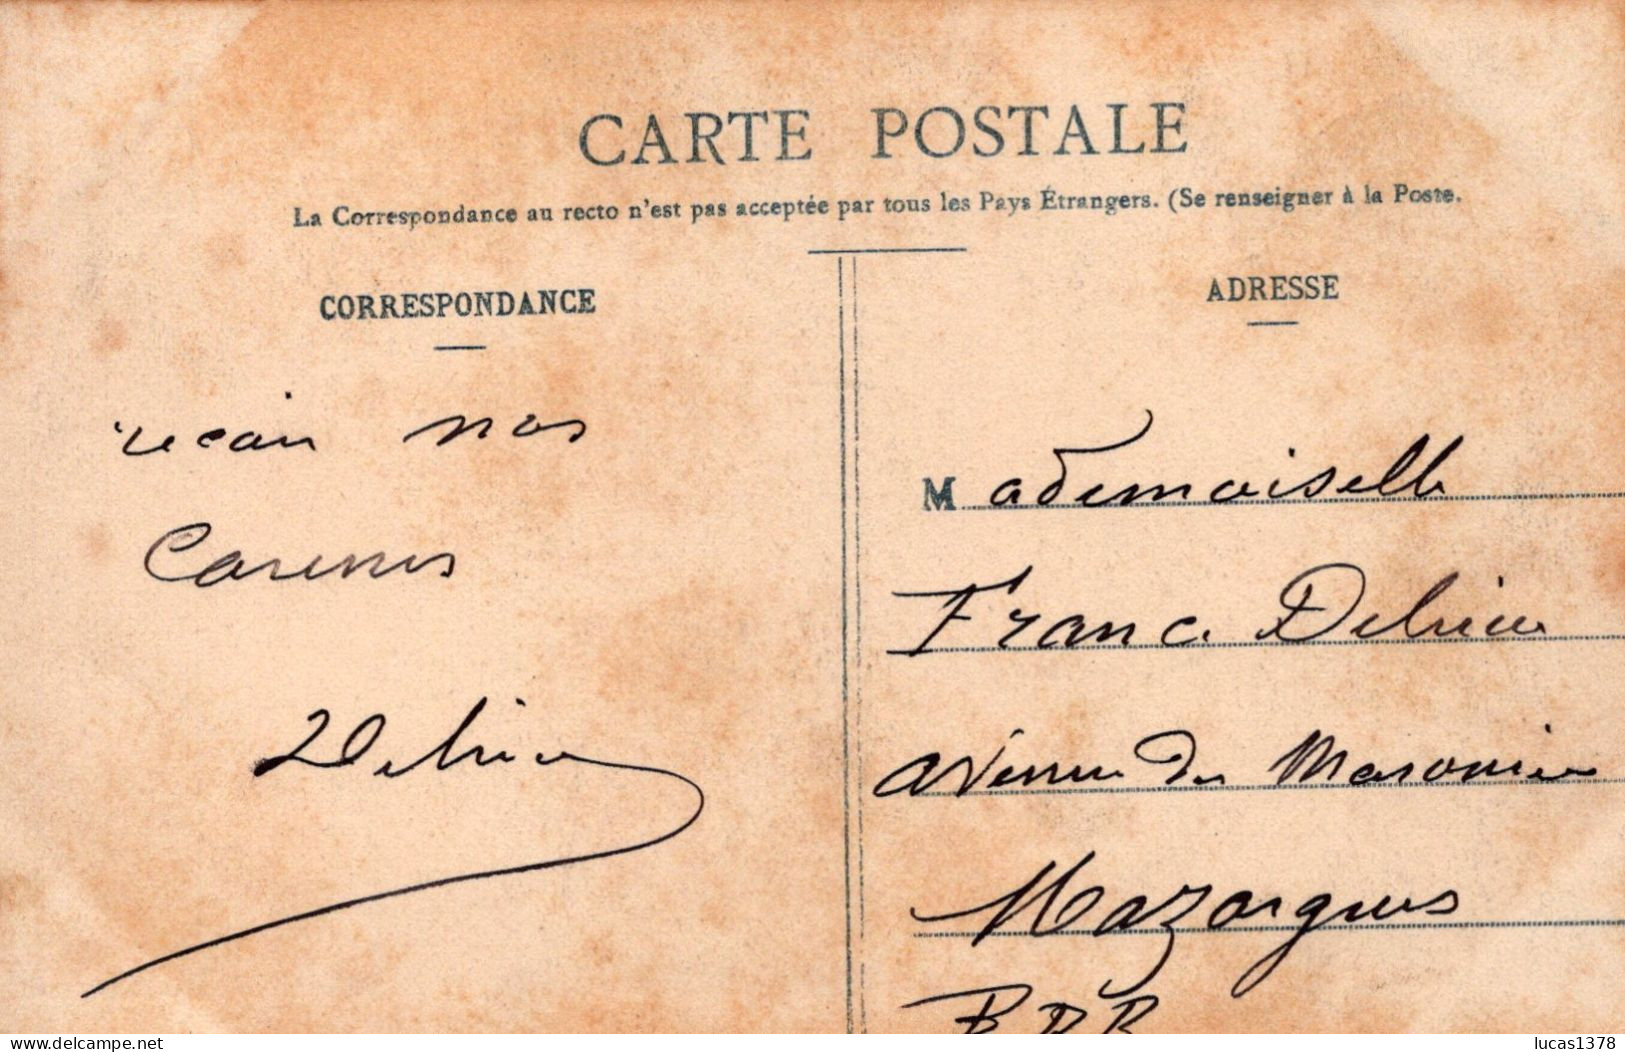 CARTE POSTALE
La Correspondance au recto n'est pas acceptée par tous les Pays Étrangers. (Se renseigner à la Poste.
CORRESPONDANCE
ADRESSE
nos
Mademoiselle
Franc.
avenue du
Mazargues
BDR
www.delcampe.net
lucas1378